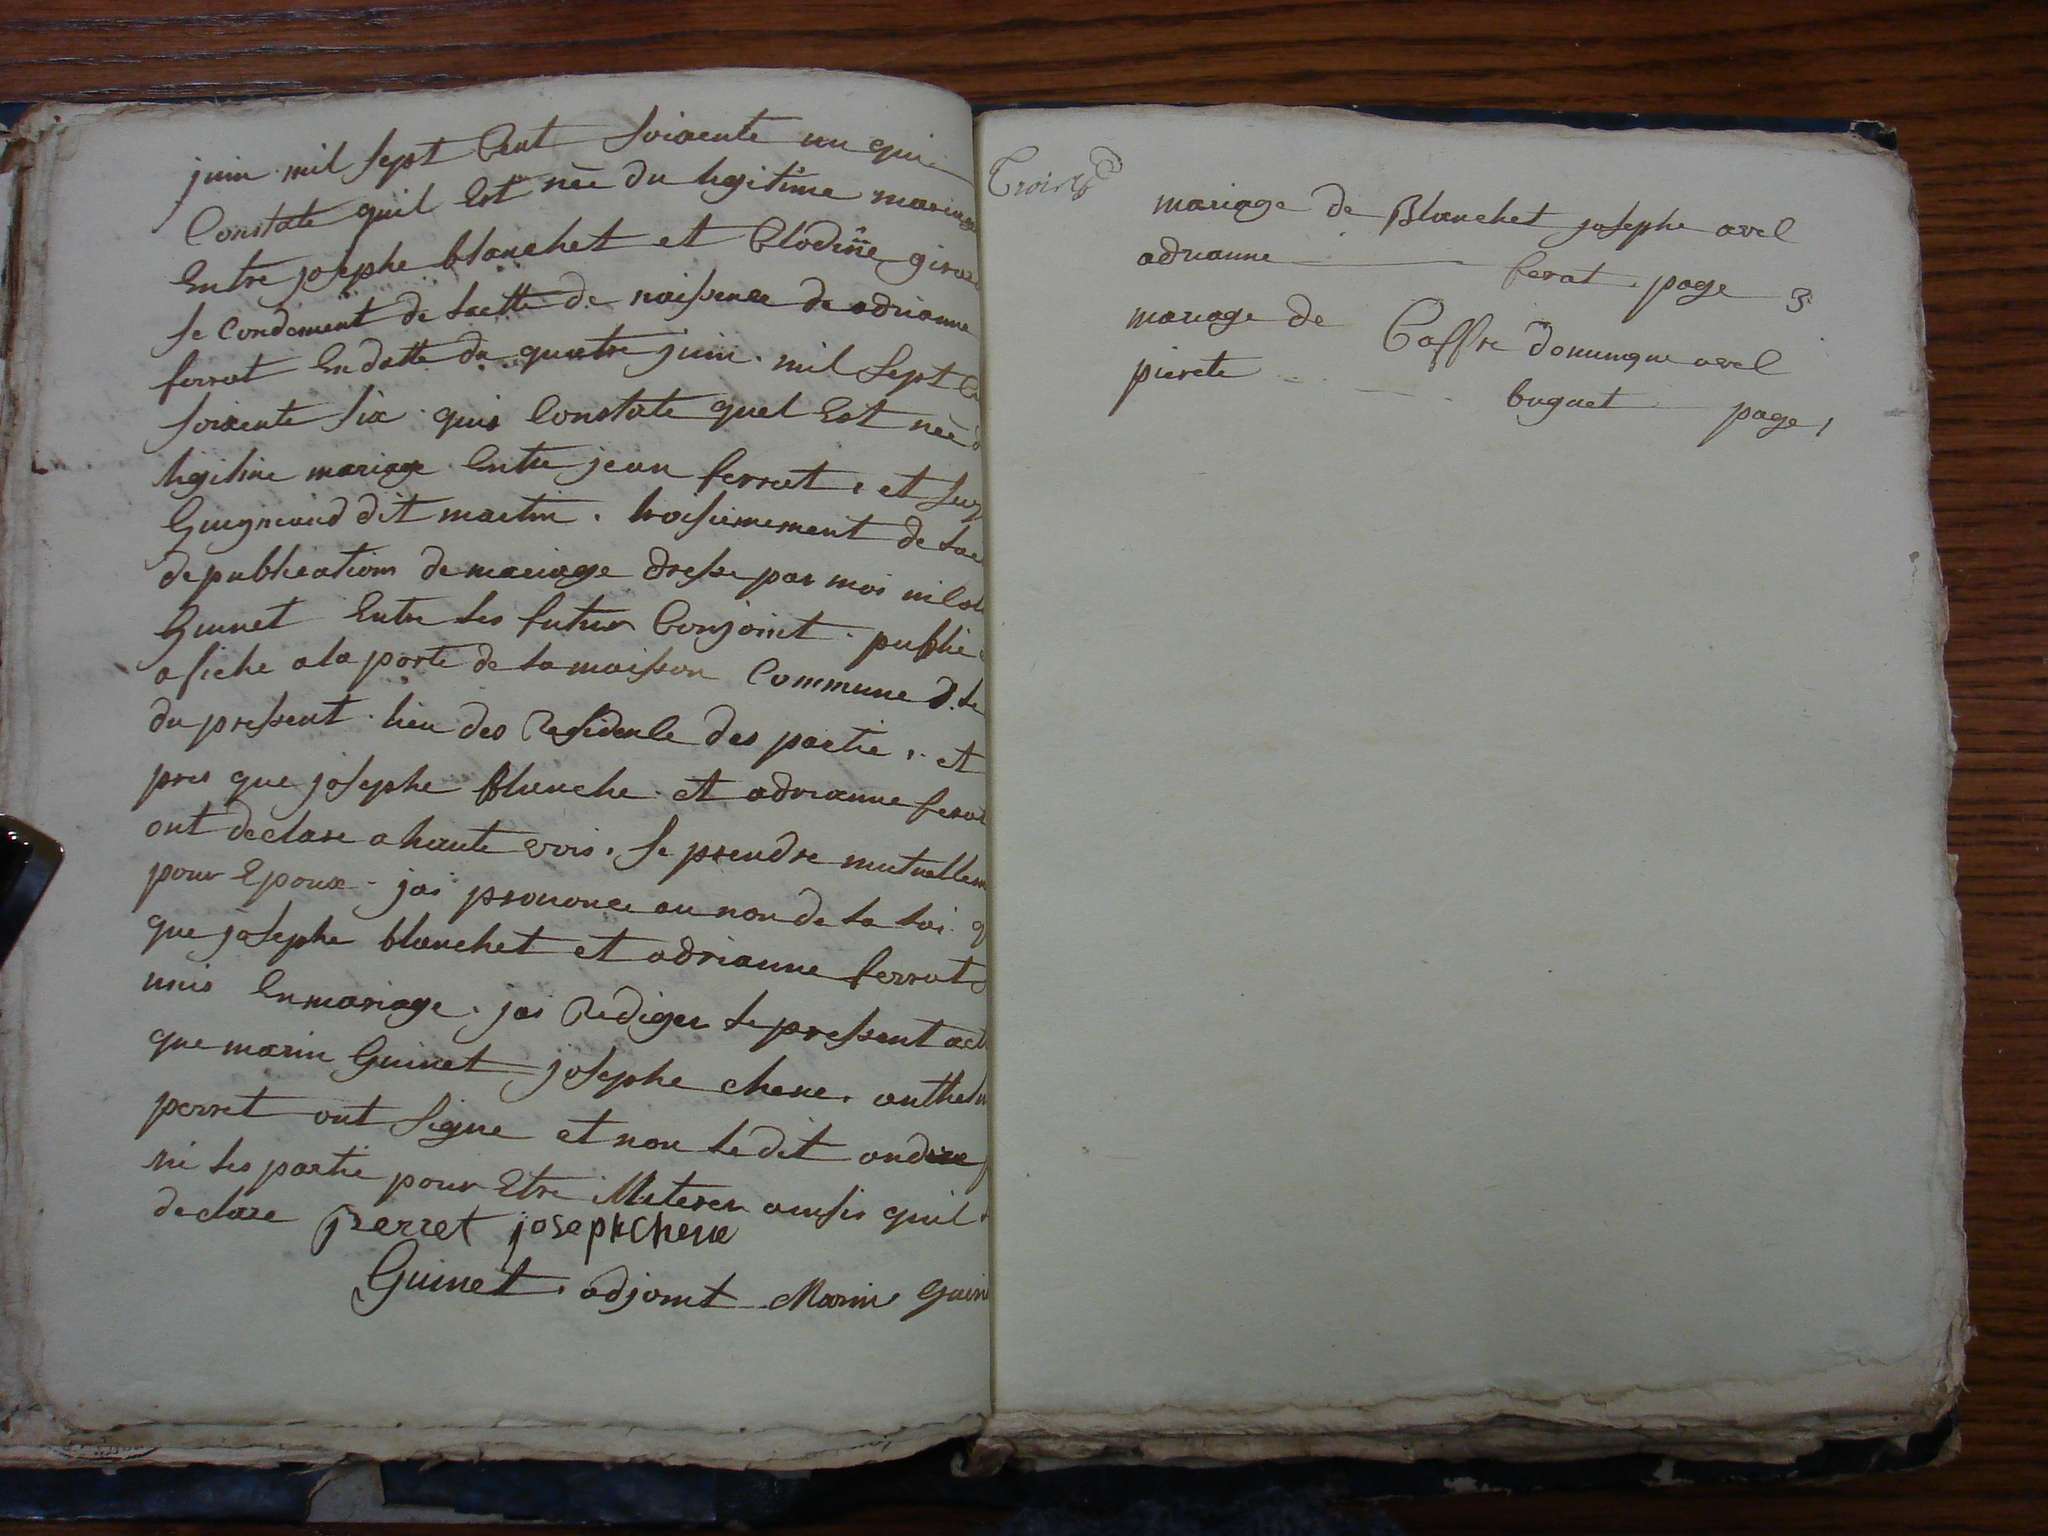 juin mil sept Cent soixente un qui
Constate quil Est née du legitime mariage
Entre josephe blanchet et Clodinne girau
se Condement de lactte de naissence de adrianne
ferrat En datte du quatre juin mil sept Ce
soixente six quis Constate quel Est née d
legitine mariage Entre jean ferrat, et suz
Guigneaud dit martin. troisiemement de lac
de publications de mariage dresse par moi nicola
Guinet Entre les futur Conjoint publie
afiche a la porte de la maisson Commune
du pressent lieu des Residence des partie, et
pres que josephe Blanche et adrianne ferat
ont declare a haute vois. se prendre mutuellem
pour Epoux jai prononce au non de la loi q
que josephe blanchet et adrianne ferrat
unis En mariage. jai Rediger le pressent act
que marin Guinet josephe chene. anthelm
perret ont signe et non le dit
ni les partie pour Etre illiterer ainsis quil
declare perret joseph chene
Guinet adjoint Marin Guin
mariage de Blanchet josephe avec
adrianne ferat page 3
mariage de Coffre dominique avec
pierete buguet page 1